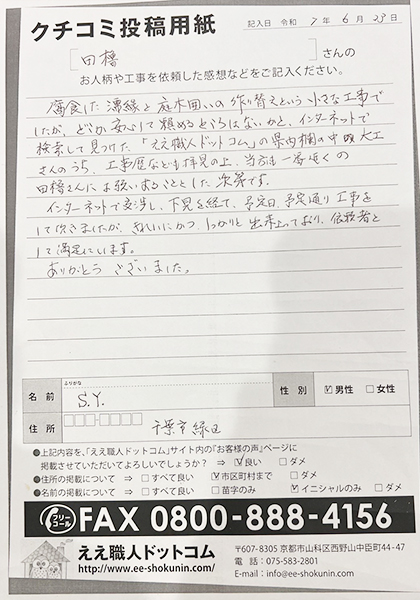 クチコミ投稿用紙
記入日 令和 7年 6月 23日
[田櫓]さんの
お人柄や工事を依頼した感想などをご記入ください。
腐食した濡縁と庭木囲いの作り替えという小さな工事で
したが、どこか安心して頼めるところはないかと、インターネットで
検索して見つけた「ええ職人ドットコム」の県内欄の中の大工
さんのうち、工事歴なども拝見の上、当方に一番近くの
田櫓さんにお願いすることとした次第です。
インターネットで交渉し、下見を経て、予定日、予定通り工事を
して頂きましたが、きれいにかつ、しっかりと出来上っており、依頼者と
して満足にします。
ありがとうございました。
ふりがな
名前 S.Y. 性別 ☑男性 □女性
住所 千葉市緑区
●上記内容を、「ええ職人ドットコム」サイト内の『お客様の声』ページに
掲載させていただいてよろしいでしょうか? ⇒ ☑良い □ダメ
●住所の掲載について ⇒ □すべて良い ☑市区町村まで □ダメ
●名前の掲載について ⇒ □すべて良い □苗字のみ ☑イニシャルのみ □ダメ
フリーコール FAX 0800-888-4156
ええ職人ドットコム
http://www.ee-shokunin.com/
〒607-8305 京都市山科区西野山中臣町44-47
電話:075-583-2801
E-mail:info@ee-shokunin.com